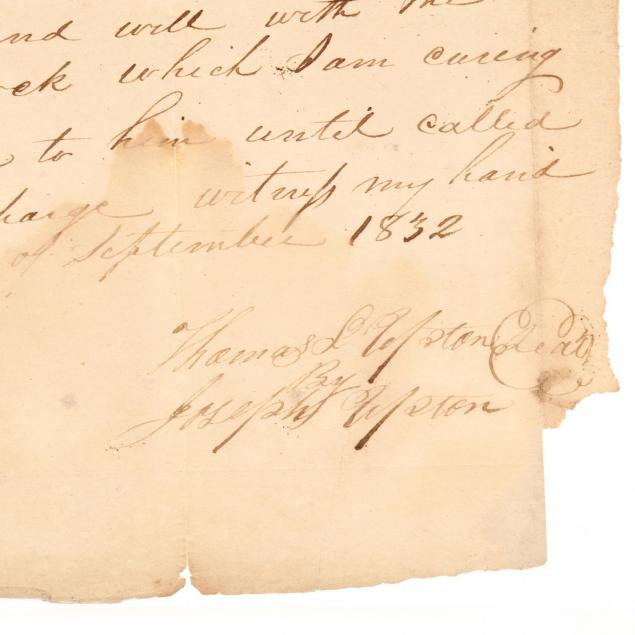 and will with the
ck which I am cureing
to him until called
harge witness my hand
of September 1832
Thomas L Upton Seal
By
Joseph Upton